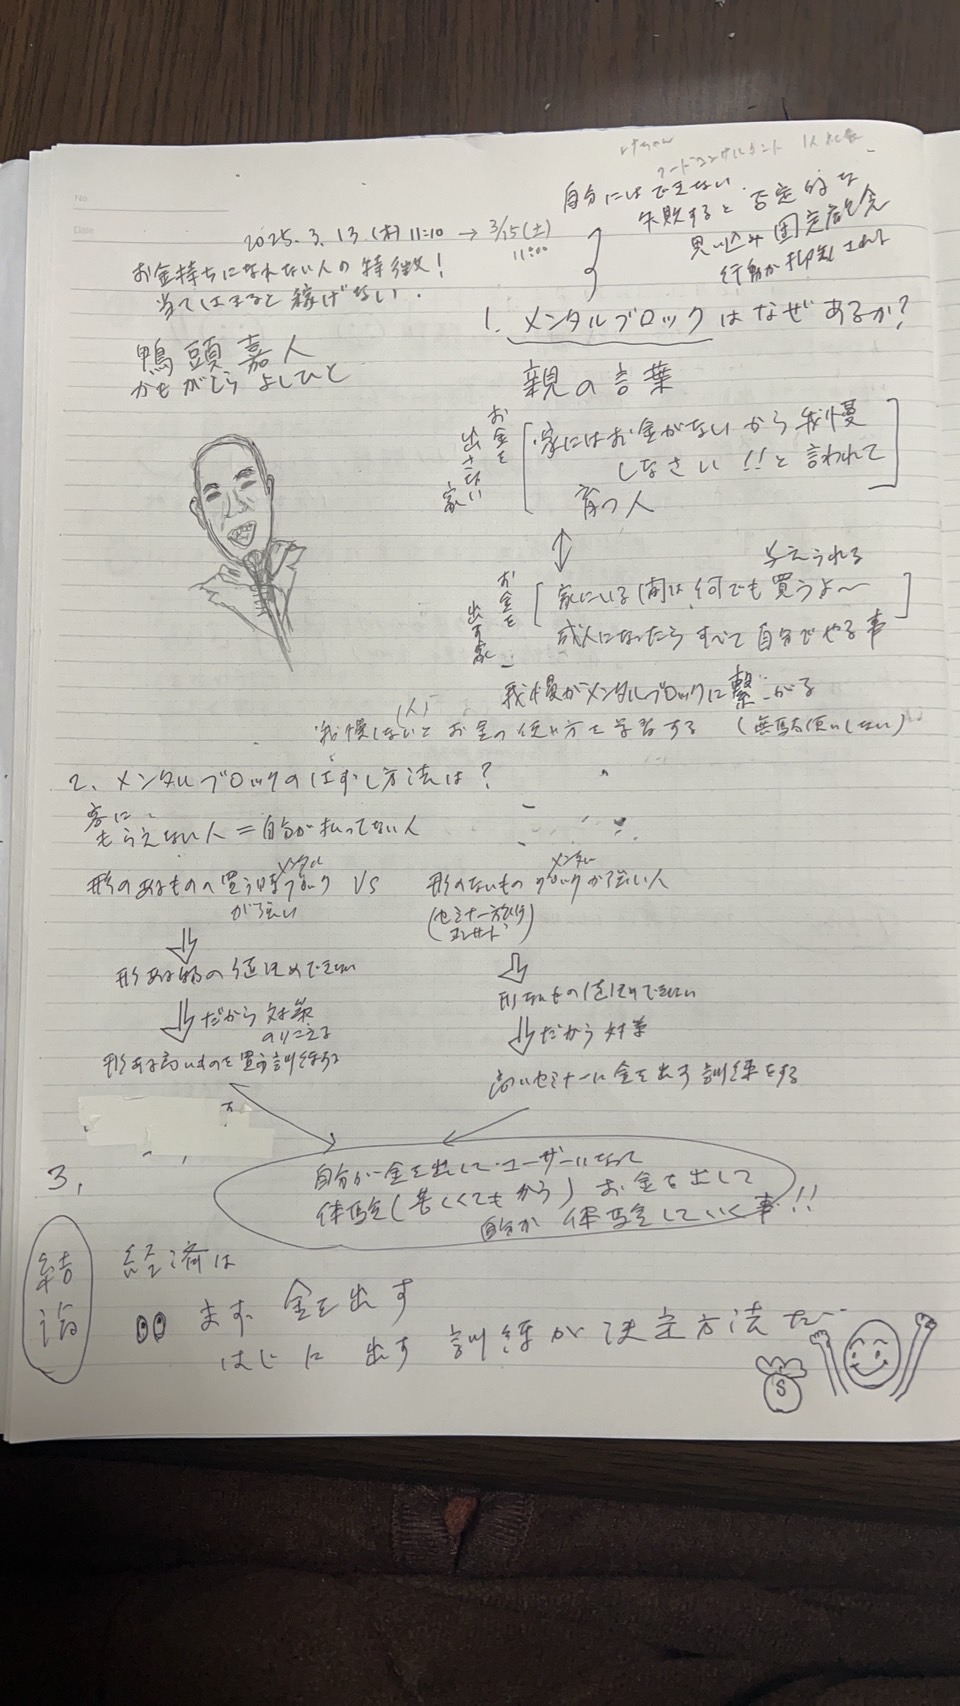 No.
Date
2025. 3. 13 (木) 11:10 → 3/15(土)
11:00
お金持ちになれない人の特徴!
当てはまると稼げない.
鴨頭嘉人
かもがしら よしひと
自分にはできない.
失敗すると否定的な
思い込み 固定観念
行動が抑制され
1. メンタルブロックはなぜあるか?
親の言葉
お金を
出さない
家
家にはお金がないから我慢
しなさい!!と言われて
育つ人
お金を
出す家
与えられる
家にいる間は何でも買うよ〜
成人になったらすべて自分でやる事
我慢がメンタルブロックに繋がる
我慢しないと お金の使い方を学習する (無駄使いしない)
2. メンタルブロックのはずし方法は?
客に
もらえない人=自分が払ってない人
形のあるものへ買う時メンタルブロック
が強い
VS
形のないもの メンタルブロックが強い人
(セミナー 旅行
コンサート)
形ある物の値決めできない
だから 対策
のりこえる
形ある高いものを買う訓練する
形ないもの値決めできない
だから 対策
高いセミナーに金を出す訓練をする
3.
自分が金を出して・ユーザーになって
体験(苦しくてもかう) お金を出して
自分が 体験していく事!!
結論
経済は
まず 金を出す
はじに出す訓練が決定方法だ
S